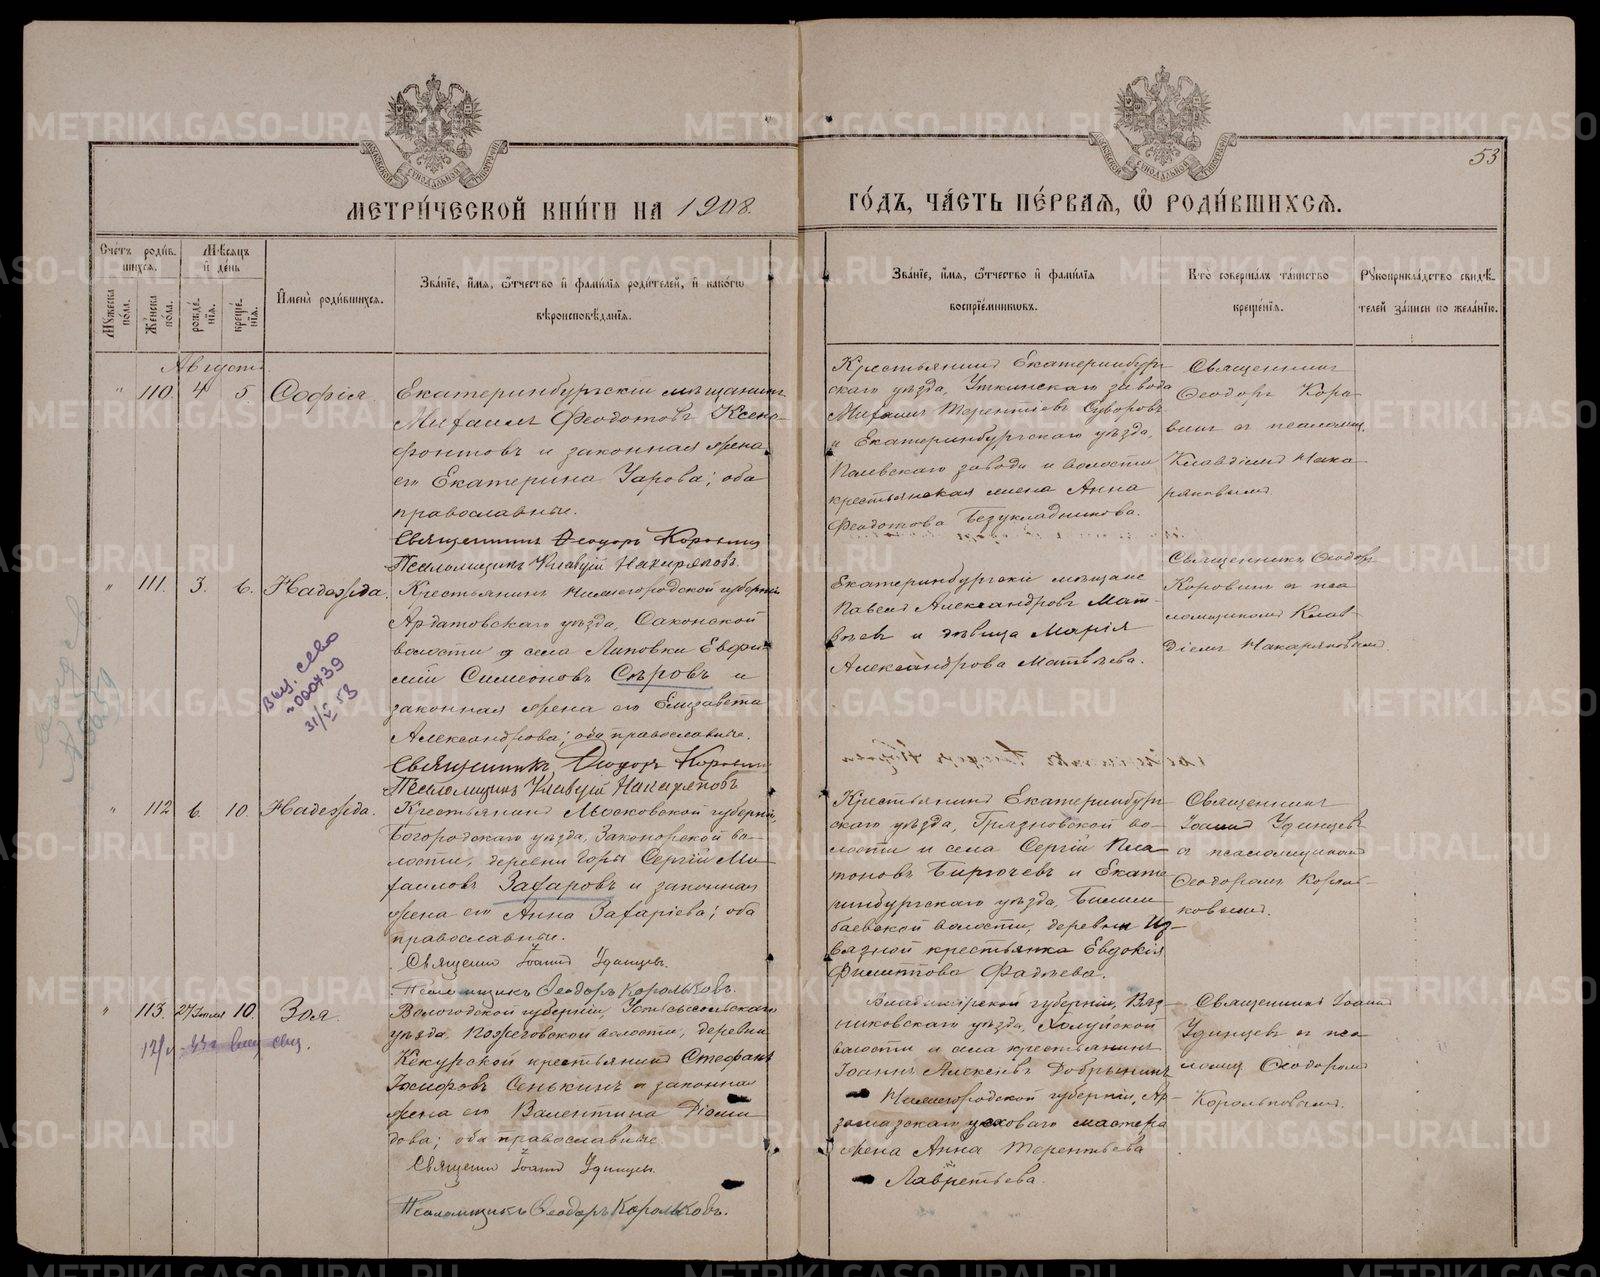 53
МЕТРИ́ЧЕСКОЙ КНИ́ГИ НА 1908.
ГО́ДЪ, ЧА́СТЬ ПЕ́РВАѦ, Ѡ РОДИ́ВШИХСѦ.
Счетъ роди́в-
шихсѧ.
Мѣ́сѧцъ
и҆ де́нь
Мꙋжеска по́ла.
Же́нска по́ла.
рожде́-
нїѧ.
креще́-
нїѧ.
И҆мена̀ роди́вшихсѧ.
Зва́нїе, и҆́мѧ, ѿчество и҆ фами́лїѧ роди́телей, и҆ како́гѡ
вѣроисповѣ́данїѧ.
Зва́нїе, и҆́мѧ, ѿчество и҆ фами́лїѧ
воспрїе́мниковъ.
Кто̀ соверша́лъ та́инство
креще́нїѧ.
Рꙋкоприкла́дство свидѣ́-
телей за́писи по жела́нїю.
Августъ
" 110. 4 5. Софія.
Екатеринбургскій мѣщанинъ
Михаилъ Ѳеодотовъ Ксено-
фонтовъ и законная жена
его Екатерина Уарова; оба
православные.
Священникъ Ѳеодоръ Коровинъ
Псаломщикъ Клавдій Накаряковъ.
Крестьянинъ Екатеринбург-
скаго уѣзда, Уткинскаго завода
Михаилъ Терентіевъ Суворовъ
и Екатеринбургскаго уѣзда,
завода и волости
крестьянская жена Анна
Ѳеодотова Безукладникова.
Священникъ
Ѳеодоръ Коро-
винъ съ псаломщ.
Клавдіемъ Нака-
ряковымъ
" 111. 3. 6. Надежда.
Крестьянинъ Нижегородской губерніи
Ардатовскаго уѣзда, Саконской
волости села Липовки Евѳи-
мій Симеоновъ Сѣровъ и
законная жена его Елизавета
Александрова; оба православные.
Священникъ Ѳеодоръ Коровинъ
Псаломщикъ Клавдій Накаряковъ
выд. св-во
№000439
31/V 58
Екатеринбургскіе мѣщане
Павелъ Александровъ Мат-
вѣевъ и дѣвица Марія
Александрова Матвѣева.
Священникъ Ѳеодоръ
Коровинъ съ пса-
ломщикомъ Клав-
діемъ Накаряковымъ.
" 112 6. 10. Надежда.
Крестьянинъ Московской губерніи,
Богородскаго уѣзда, Запонорской во-
лости, деревни Горы Сергій Ми-
хаиловъ Захаровъ и законная
жена его Анна Захаріева; оба
православные.
Священн Іоаннъ Удинцевъ.
Псаломщикъ Ѳеодоръ Корольковъ.
Крестьянинъ Екатеринбург-
скаго уѣзда, Грязновской во-
лости и села Сергій Пла-
тоновъ Бирючевъ и Екате-
ринбургскаго уѣзда, Билим-
баевской волости, деревни Из-
вязной крестьянка Евдокія
Филиппова Фадѣева.
Священникъ
Іоаннъ Удинцевъ
съ псаломщикомъ
Ѳеодоромъ Король-
ковымъ.
" 113. 27 Іюля 10. Зоя.
Вологодской губерніи, Устьсысольскаго
уѣзда, Пожеговской волости, деревни
Кекурской крестьянинъ Стефанъ
Іосифовъ Сенькинъ и законная
жена его Валентина Діоми-
дова; оба православные.
Священн Іоаннъ Удинцевъ.
Псаломщикъ Ѳеодоръ Корольковъ.
Владимірской губерніи, Вяз-
никовскаго уѣзда, Холуйской
волости и села крестьянинъ
Іоаннъ Алексѣевъ Добрынинъ
Нижегородской губерніи, Ар-
замазскаго цеховаго мастера
жена Анна Терентьева
Лаврентьева.
Священникъ Іоаннъ
Удинцевъ съ пса-
ломщ Ѳеодоромъ
Корольковымъ.
METRIKI.GASO-URAL.RU